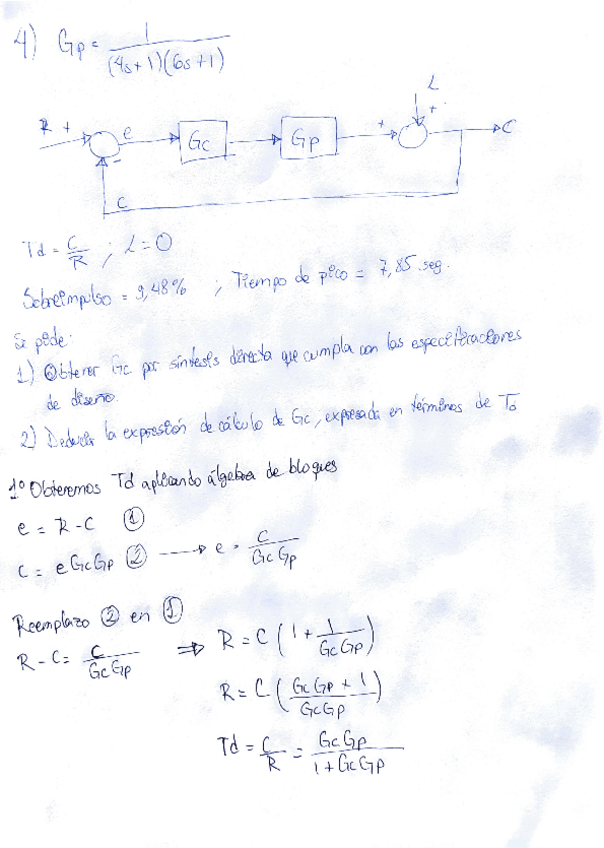 4) Gp = 1 / (4s+1)(6s+1)
R + e Gc Gp + L + C
-
C
Td = C/R ; L = 0
Sobreimpulso = 9,48% ; Tiempo de pico = 7,85 seg.
Se pide:
1) Obtener Gc por síntesis directa que cumpla con las especificaciones
de diseño.
2) Deducir la expresión de cálculo de Gc, expresada en términos de To
1º Obteremos Td aplicando álgebra de bloques
e = R - C ①
C = e Gc Gp ② → e = C / Gc Gp
Reemplazo ② en ①
R - C = C / Gc Gp ⇒ R = C ( 1 + 1 / Gc Gp )
R = C ( Gc Gp + 1 / Gc Gp )
Td = C/R = Gc Gp / 1 + Gc Gp